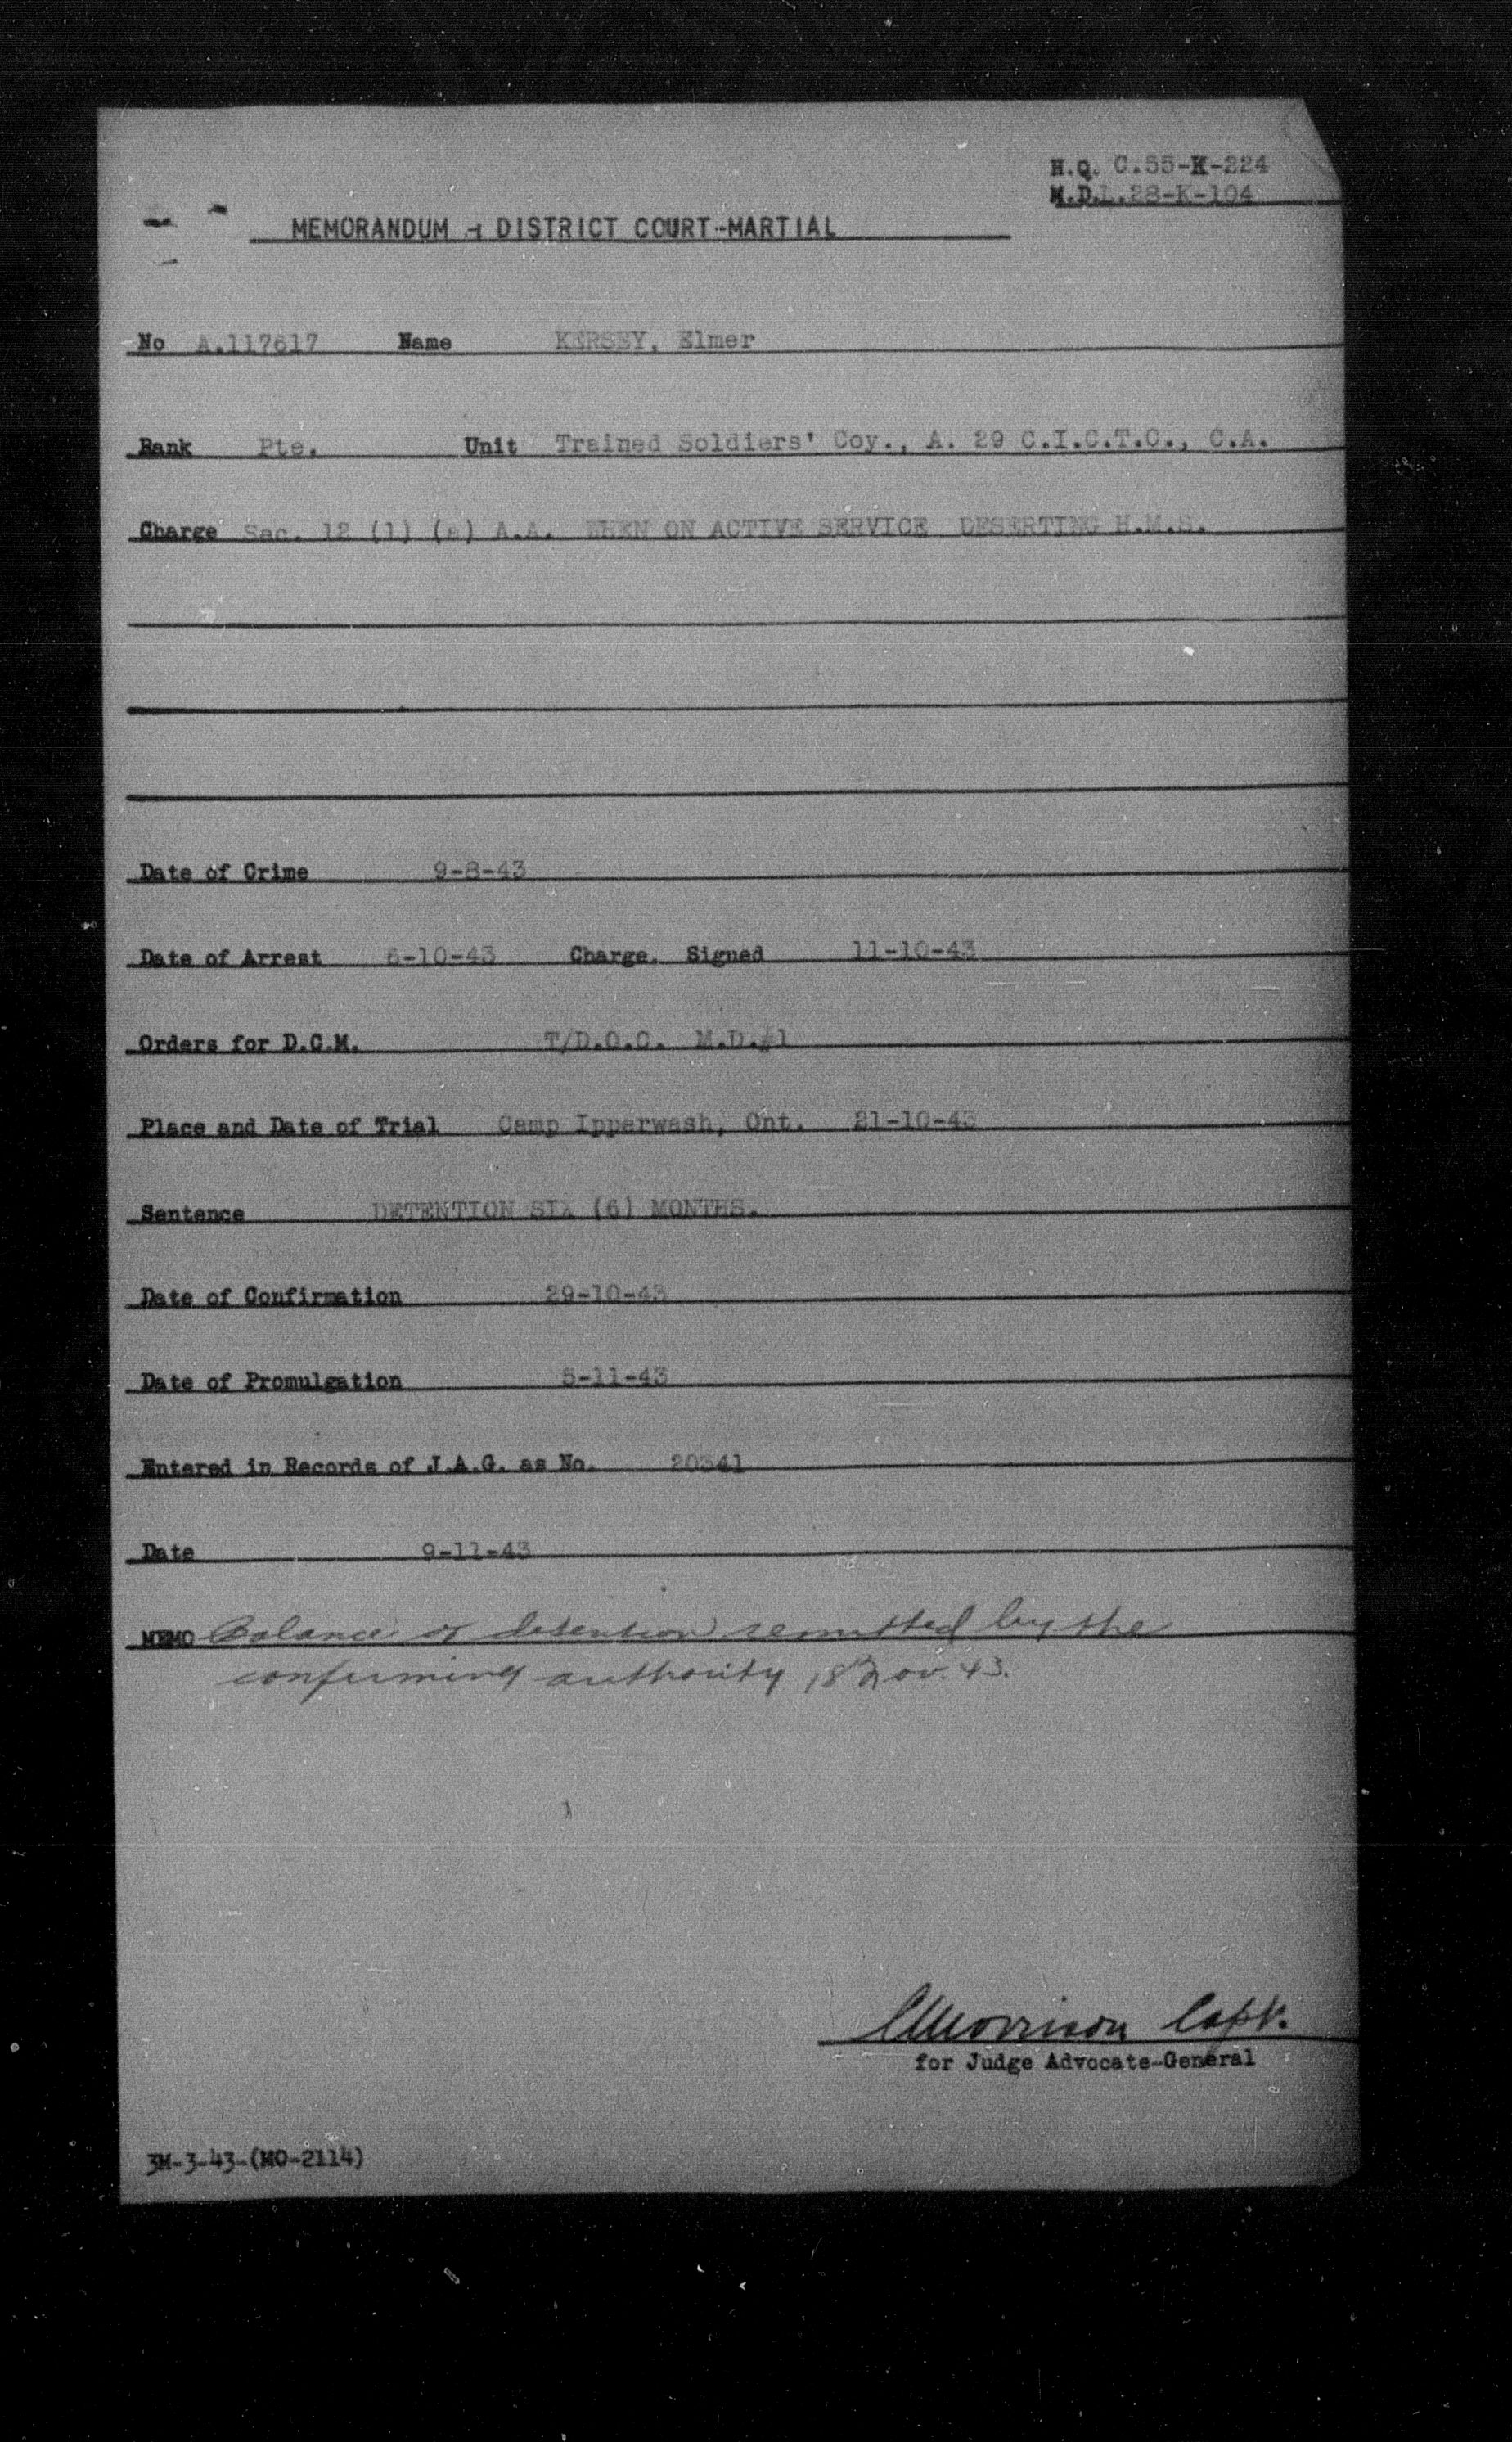 H.Q. C.55-K-224
M.D.1.28-K-104
MEMORANDUM - DISTRICT COURT-MARTIAL
No A.117617 Name KERSEY, Elmer
Rank Pte. Unit Trained Soldiers' Coy., A. 29 C.I.C.T.C., C.A.
Charge Sec. 12 (1) (a) A.A. WHEN ON ACTIVE SERVICE DESERTING H.M.S.
Date of Crime 9-8-43
Date of Arrest 6-10-43 Charge. Signed 11-10-43
Orders for D.C.M. T/D.O.C. M.D.#1
Place and Date of Trial Camp Ipperwash, Ont. 21-10-43
Sentence DETENTION SIX (6) MONTHS.
Date of Confirmation 29-10-43
Date of Promulgation 5-11-43
Entered in Records of J.A.G. as No. 20341
Date 9-11-43
MEMO Balance of detention remitted by the
confirming authority 18 Nov. 43.
Morrison Capt.
for Judge Advocate-General
3M-3-43-(MO-2114)